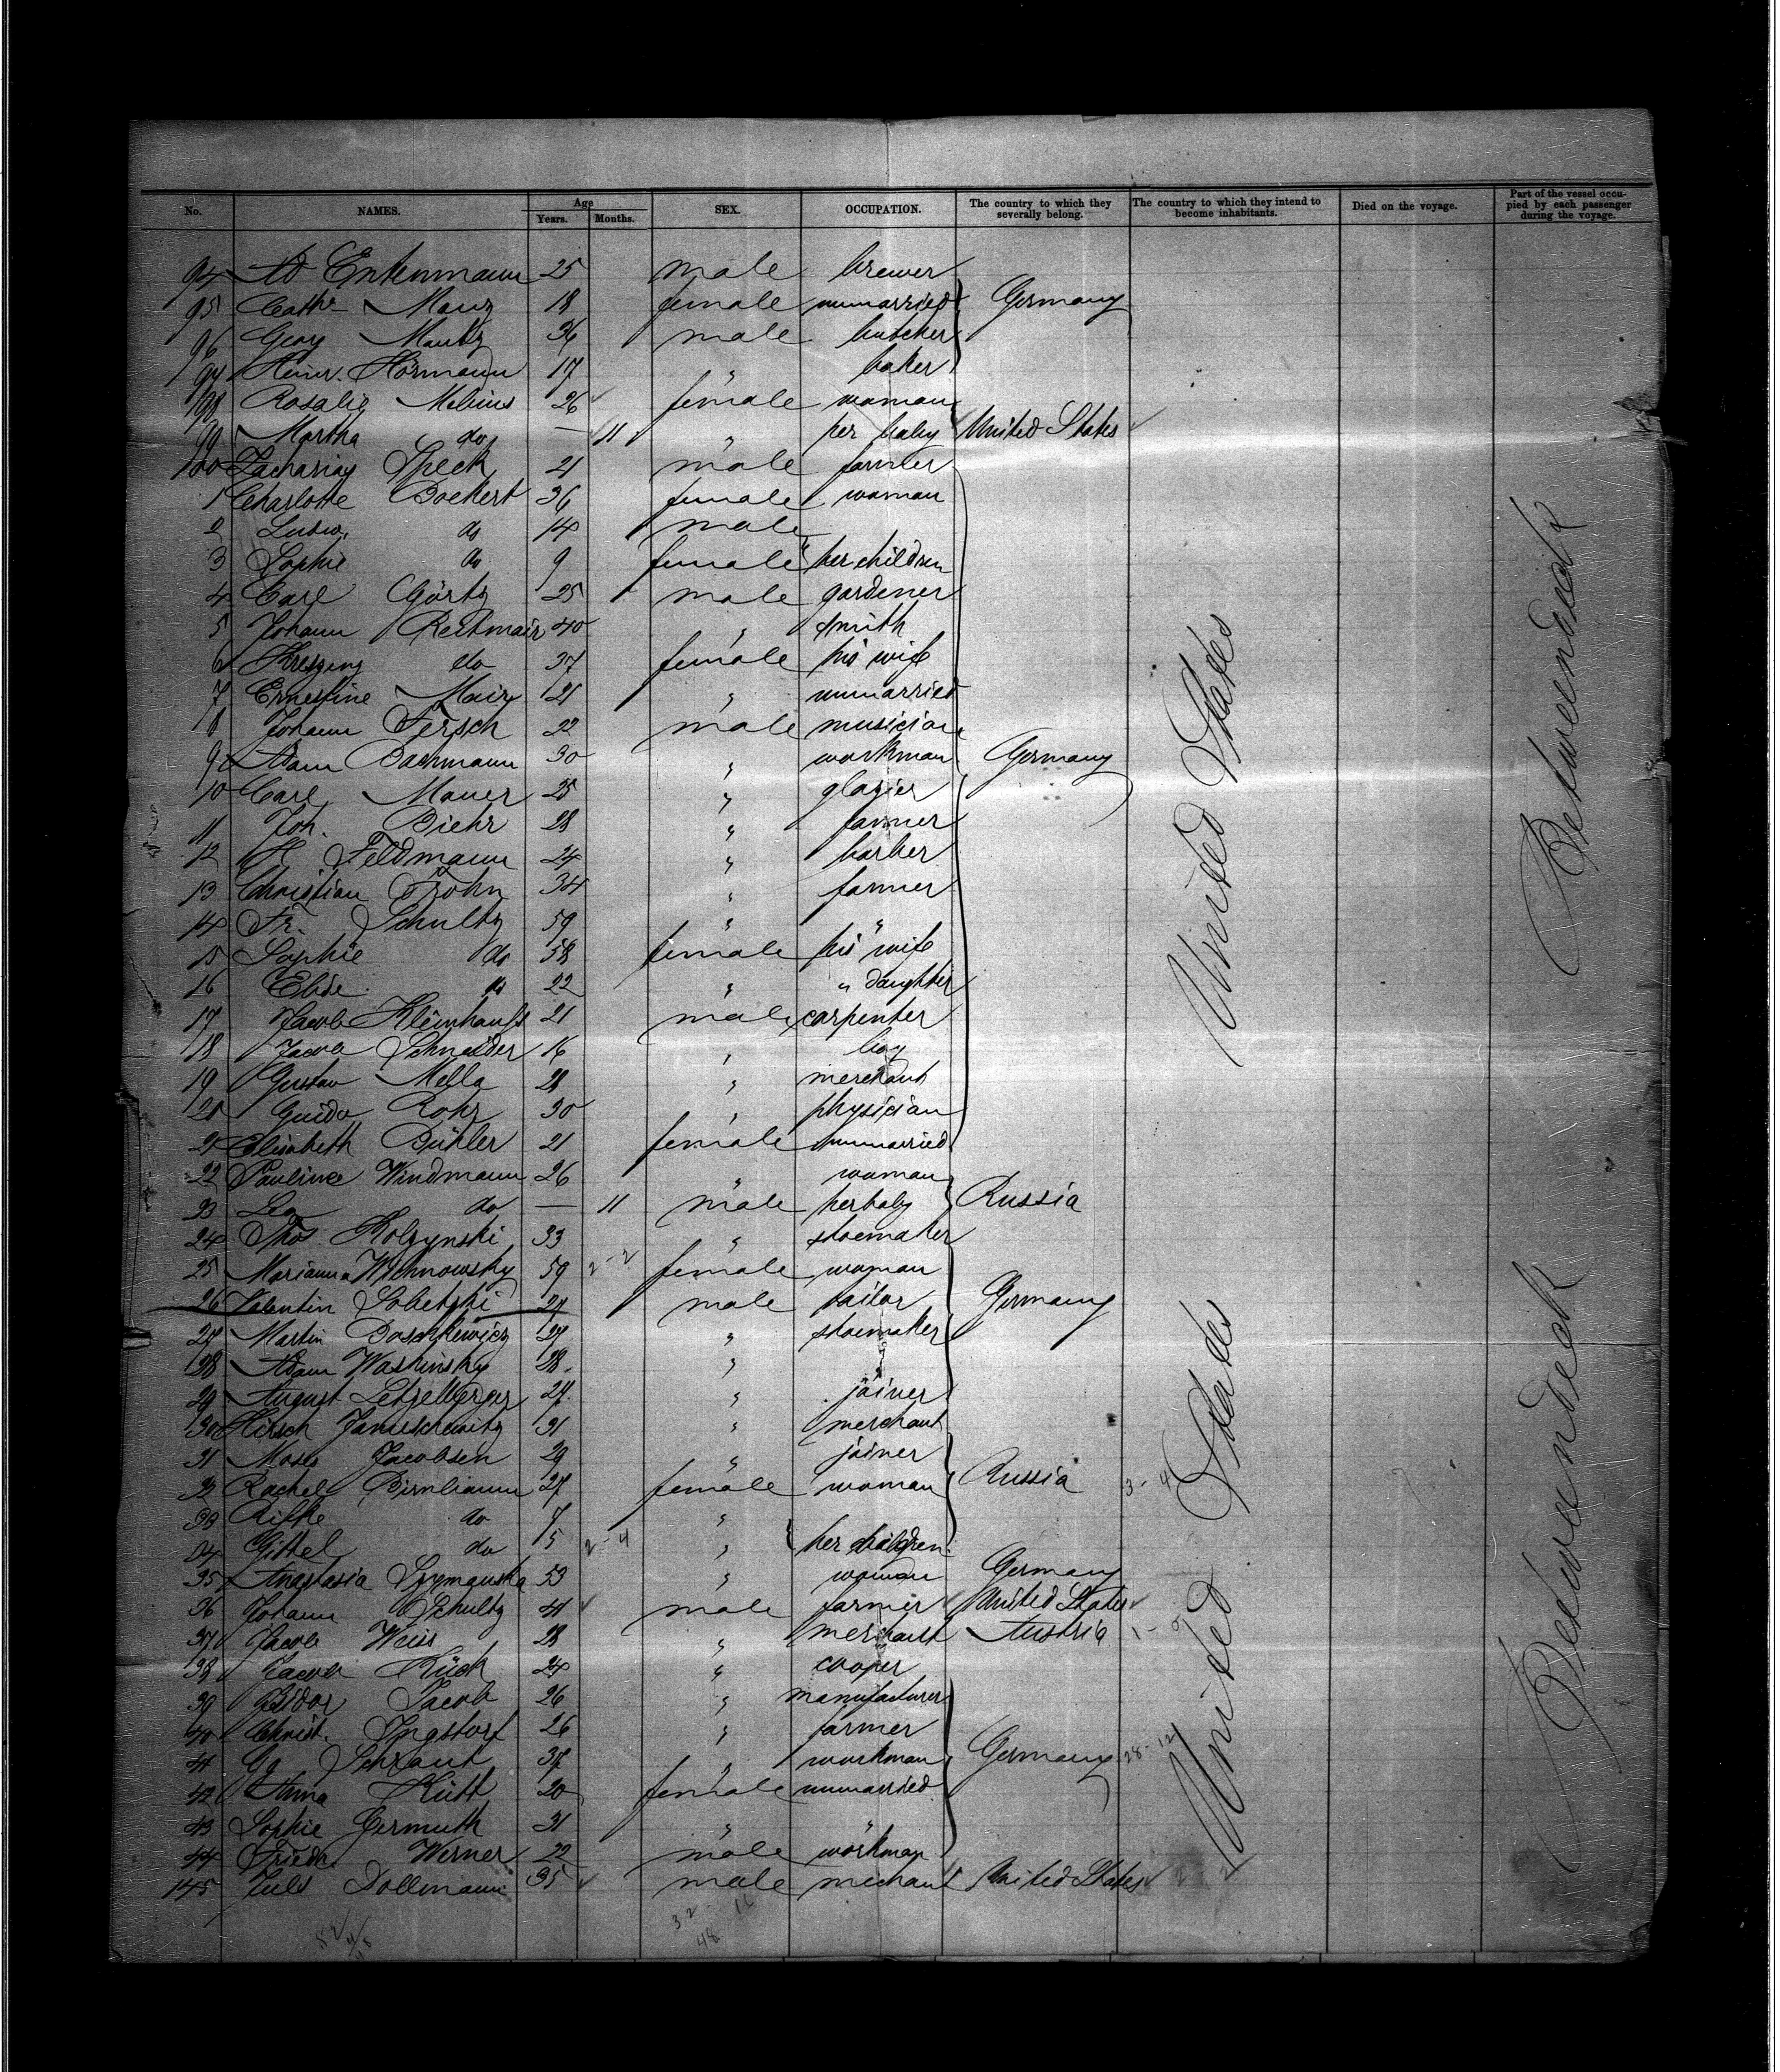 No. NAMES. Age Years. Months. SEX. OCCUPATION. The country to which they severally belong. The country to which they intend to become inhabitants. Died on the voyage. Part of the vessel occupied by each passenger during the voyage.
94 Ad Entenmann 25 male brewer
95 Cath. 18 female unmarried Germany
96 Georg 36 male butcher
97 Heinr. Hörmann 17 " baker
98 Rosalie 26 female woman
99 Martha do — 11 " her baby United States
100 Zacharias Speck 21 male farmer
1 Charlotte Bockert 36 female woman
2 Ludw. do 14 male
3 Sophie do 9 female her children
4 Carl Görtz 25 male gardener
5 Johann Reitmair 40 " smith
6 do 37 female his wife
7 Ernestine Mair 21 " unmarried
8 Johann Fersch 22 male musician
9 Adam Bachmann 30 " workman Germany
10 Carl Mauer 25 " glazier
11 Joh. Biehr 28 " farmer
12 H Feldmann 24 " barber
13 Christian Frohn 34 " farmer
14 Fr. Schultz 59 " "
15 Sophie do 58 female his wife
16 Elise do 22 " " daughter
17 Jacob Kleinhauss 21 male carpenter
18 Jacob Schneider 16 " boy
19 Gustav Mella 28 " merchant
20 Guido Rohr 30 " physician
21 Elisabeth Bühler 21 female unmarried
22 Pauline Windmann 26 " woman
23 Leo do — 11 male her baby Russia
24 Thos Kolzynski 33 " shoemaker
25 Marianna Wichnowsky 59 2-2 female woman
26 Valentin Sobetzki 27 male tailor Germany
27 Martin Boschkewicz 27 " shoemaker
28 Adam Waskinsky 28 " "
29 August Letzelberger 27 " joiner
30 Hirsch Janischewitz 31 " merchant
31 Moses Jacobsen 29 " joiner
32 Rachel Birnbaum 27 female woman Russia 3-4
33 Rifke do 7 "
34 Gittel do 5 2-4 " her children
35 Anastasia Szymanska 53 " woman Germany
36 Johann Schultz 41 male farmer United States
37 Jacob Weiss 28 " merchant Austria
38 Jacob Rück 24 " cooper
39 Isidor Jacob 26 " manufacturer
40 Christ. Ingstorf 26 " farmer
41 Gg Schraut 37 " workman Germany 28-12
42 Anna Hütt 20 female unmarried
43 Sophie Germuth 31 " "
44 Friedr. Werner 22 male workman
145 Juls Dollmann 35 male mechant United States
United States
United States
Betweendeck
Betweendeck
32 16
48